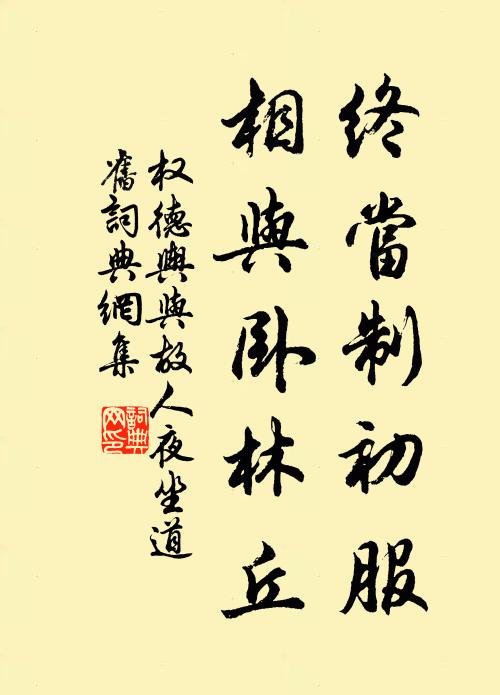 終當制初服
相與卧林丘
权德輿與故人夜坐道
舊詞典網集
詞典
网印